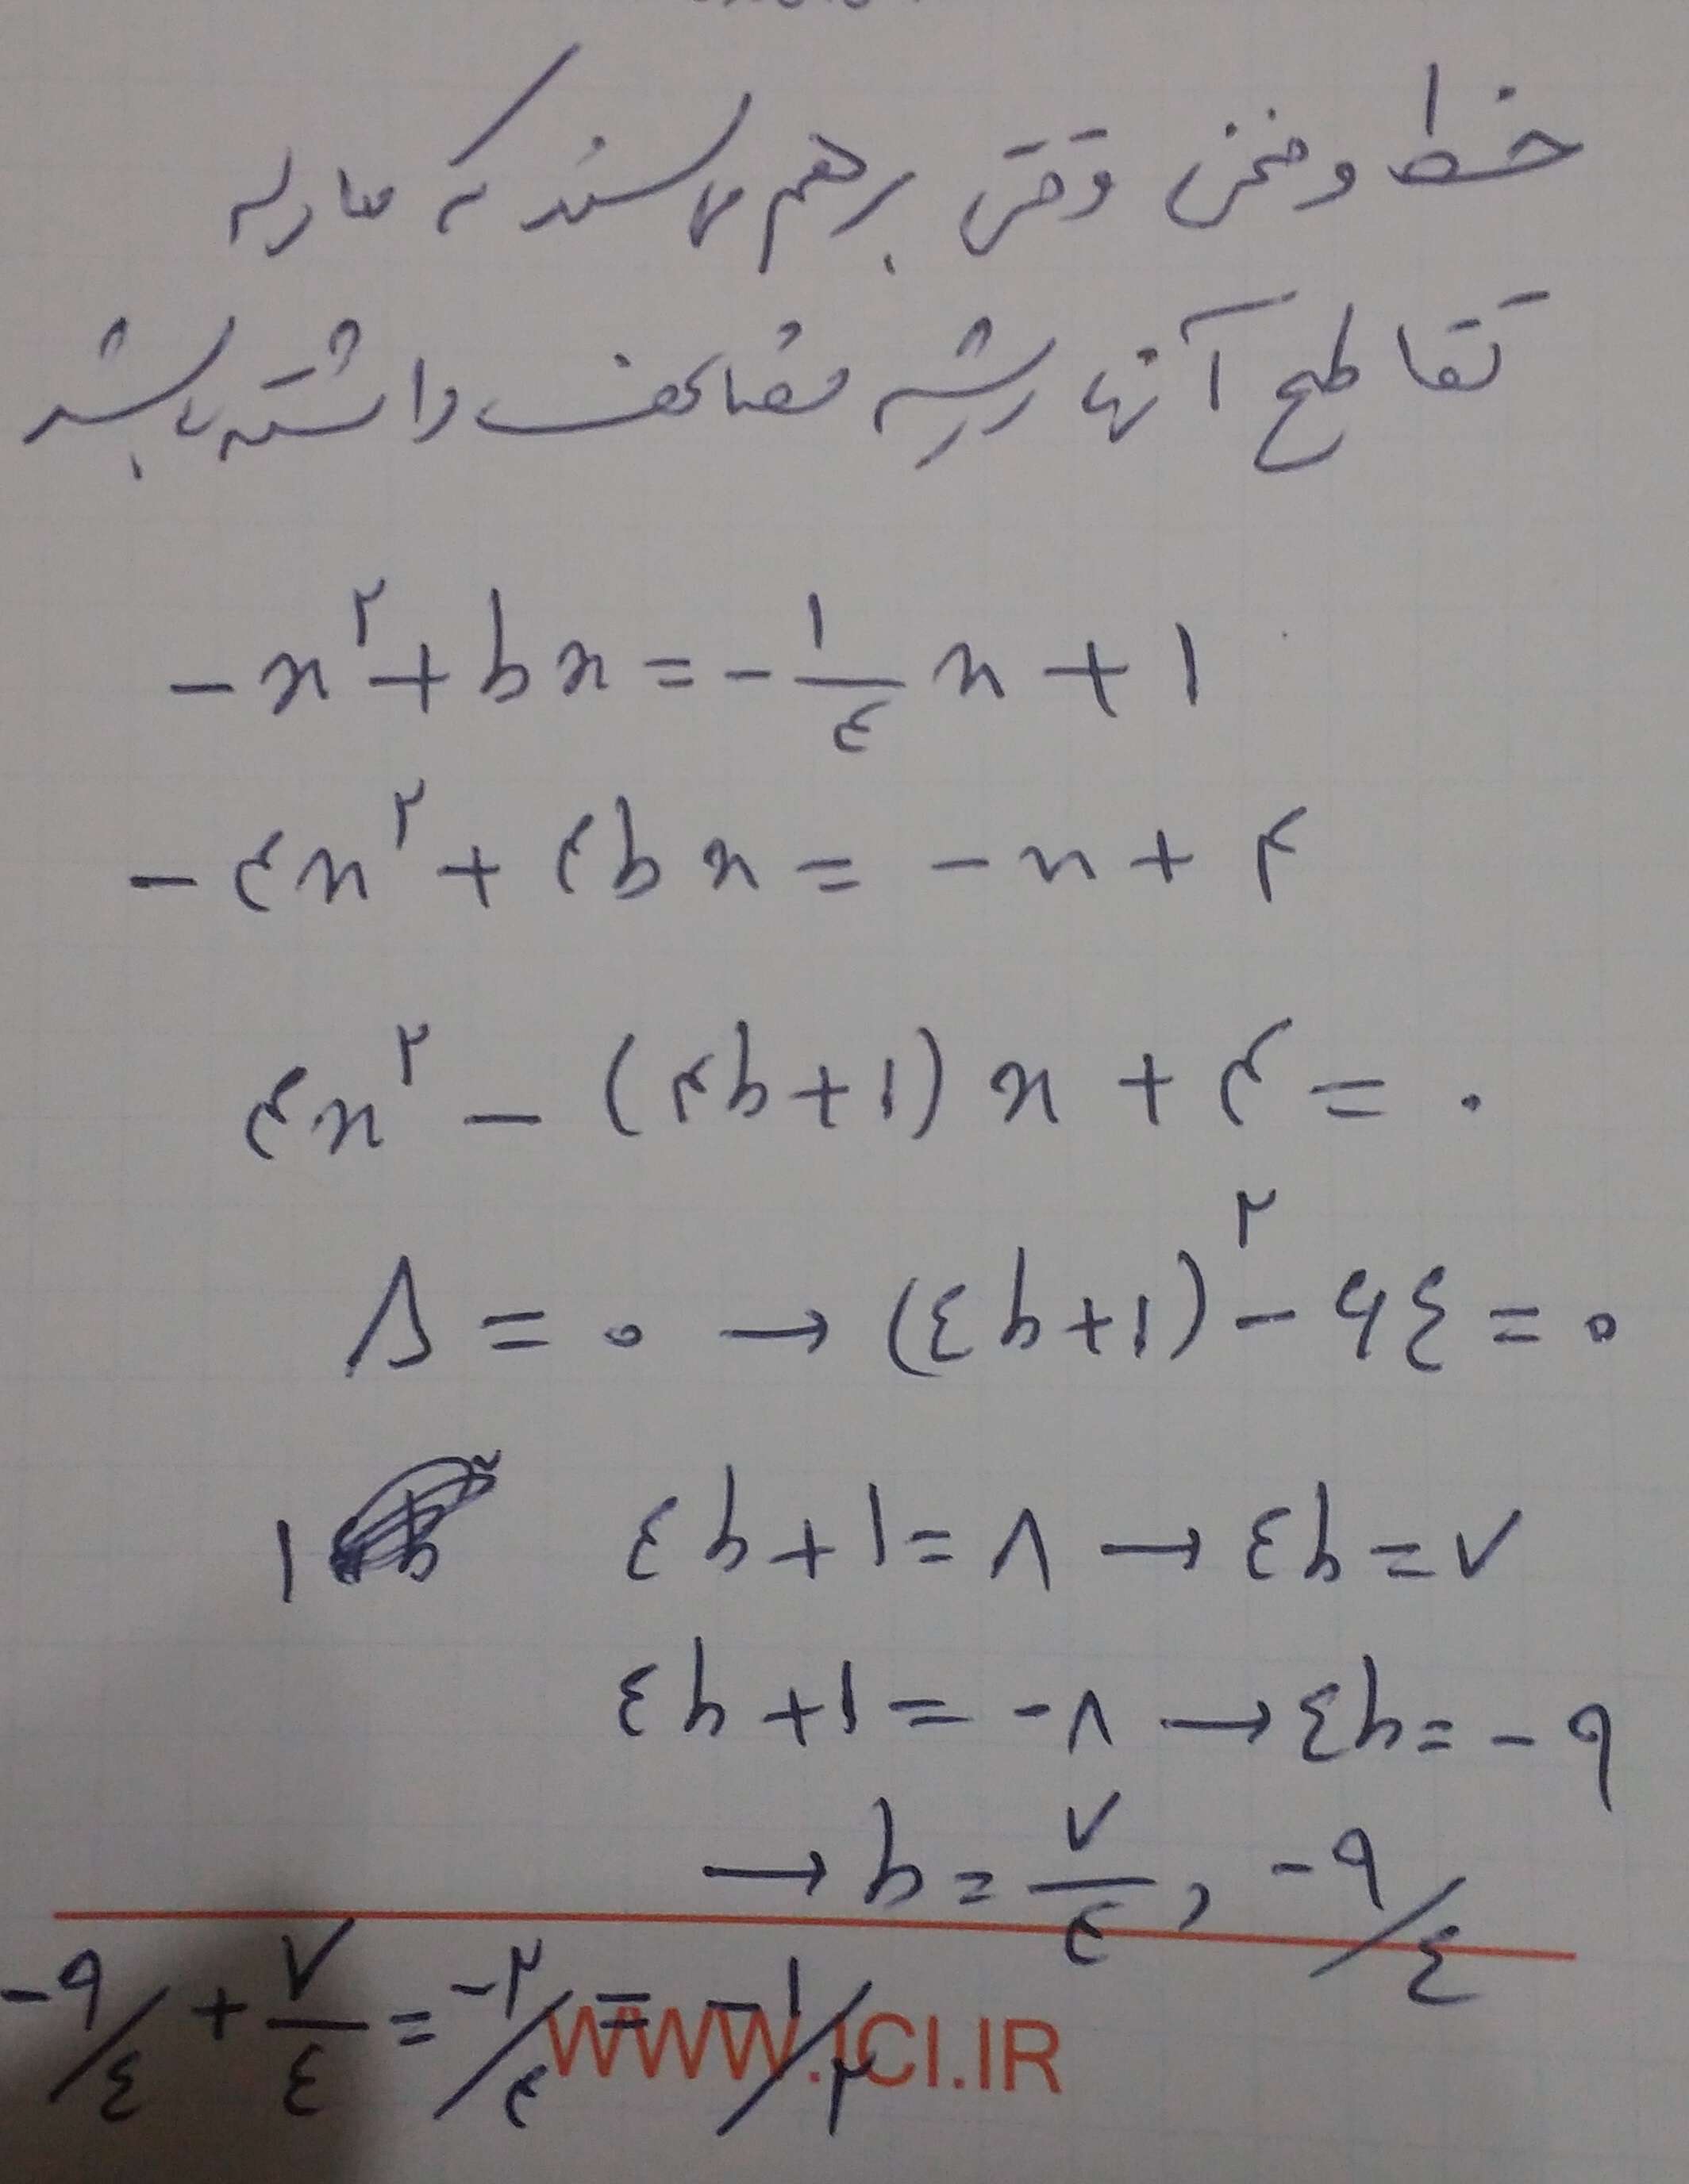 خط و منحنی وقتی بر هم مماسند که معادله
تقاطع آنها ریشه مضاعف داشته باشد
-x^۲ + bx = -۱/۴ x + ۱
-۴x^۲ + ۴bx = -x + ۴
۴x^۲ - (۴b+۱)x + ۴ = ۰
Δ = ۰ → (۴b+۱)^۲ - ۶۴ = ۰
۱ ۴b+۱=۸ → ۴b=۷
۴b+۱=-۸ → ۴b=-۹
→ b=۷/۴ , -۹/۴
-۹/۴ + ۷/۴ = -۲/۴ = -۱/۲
WWW.ICI.IR